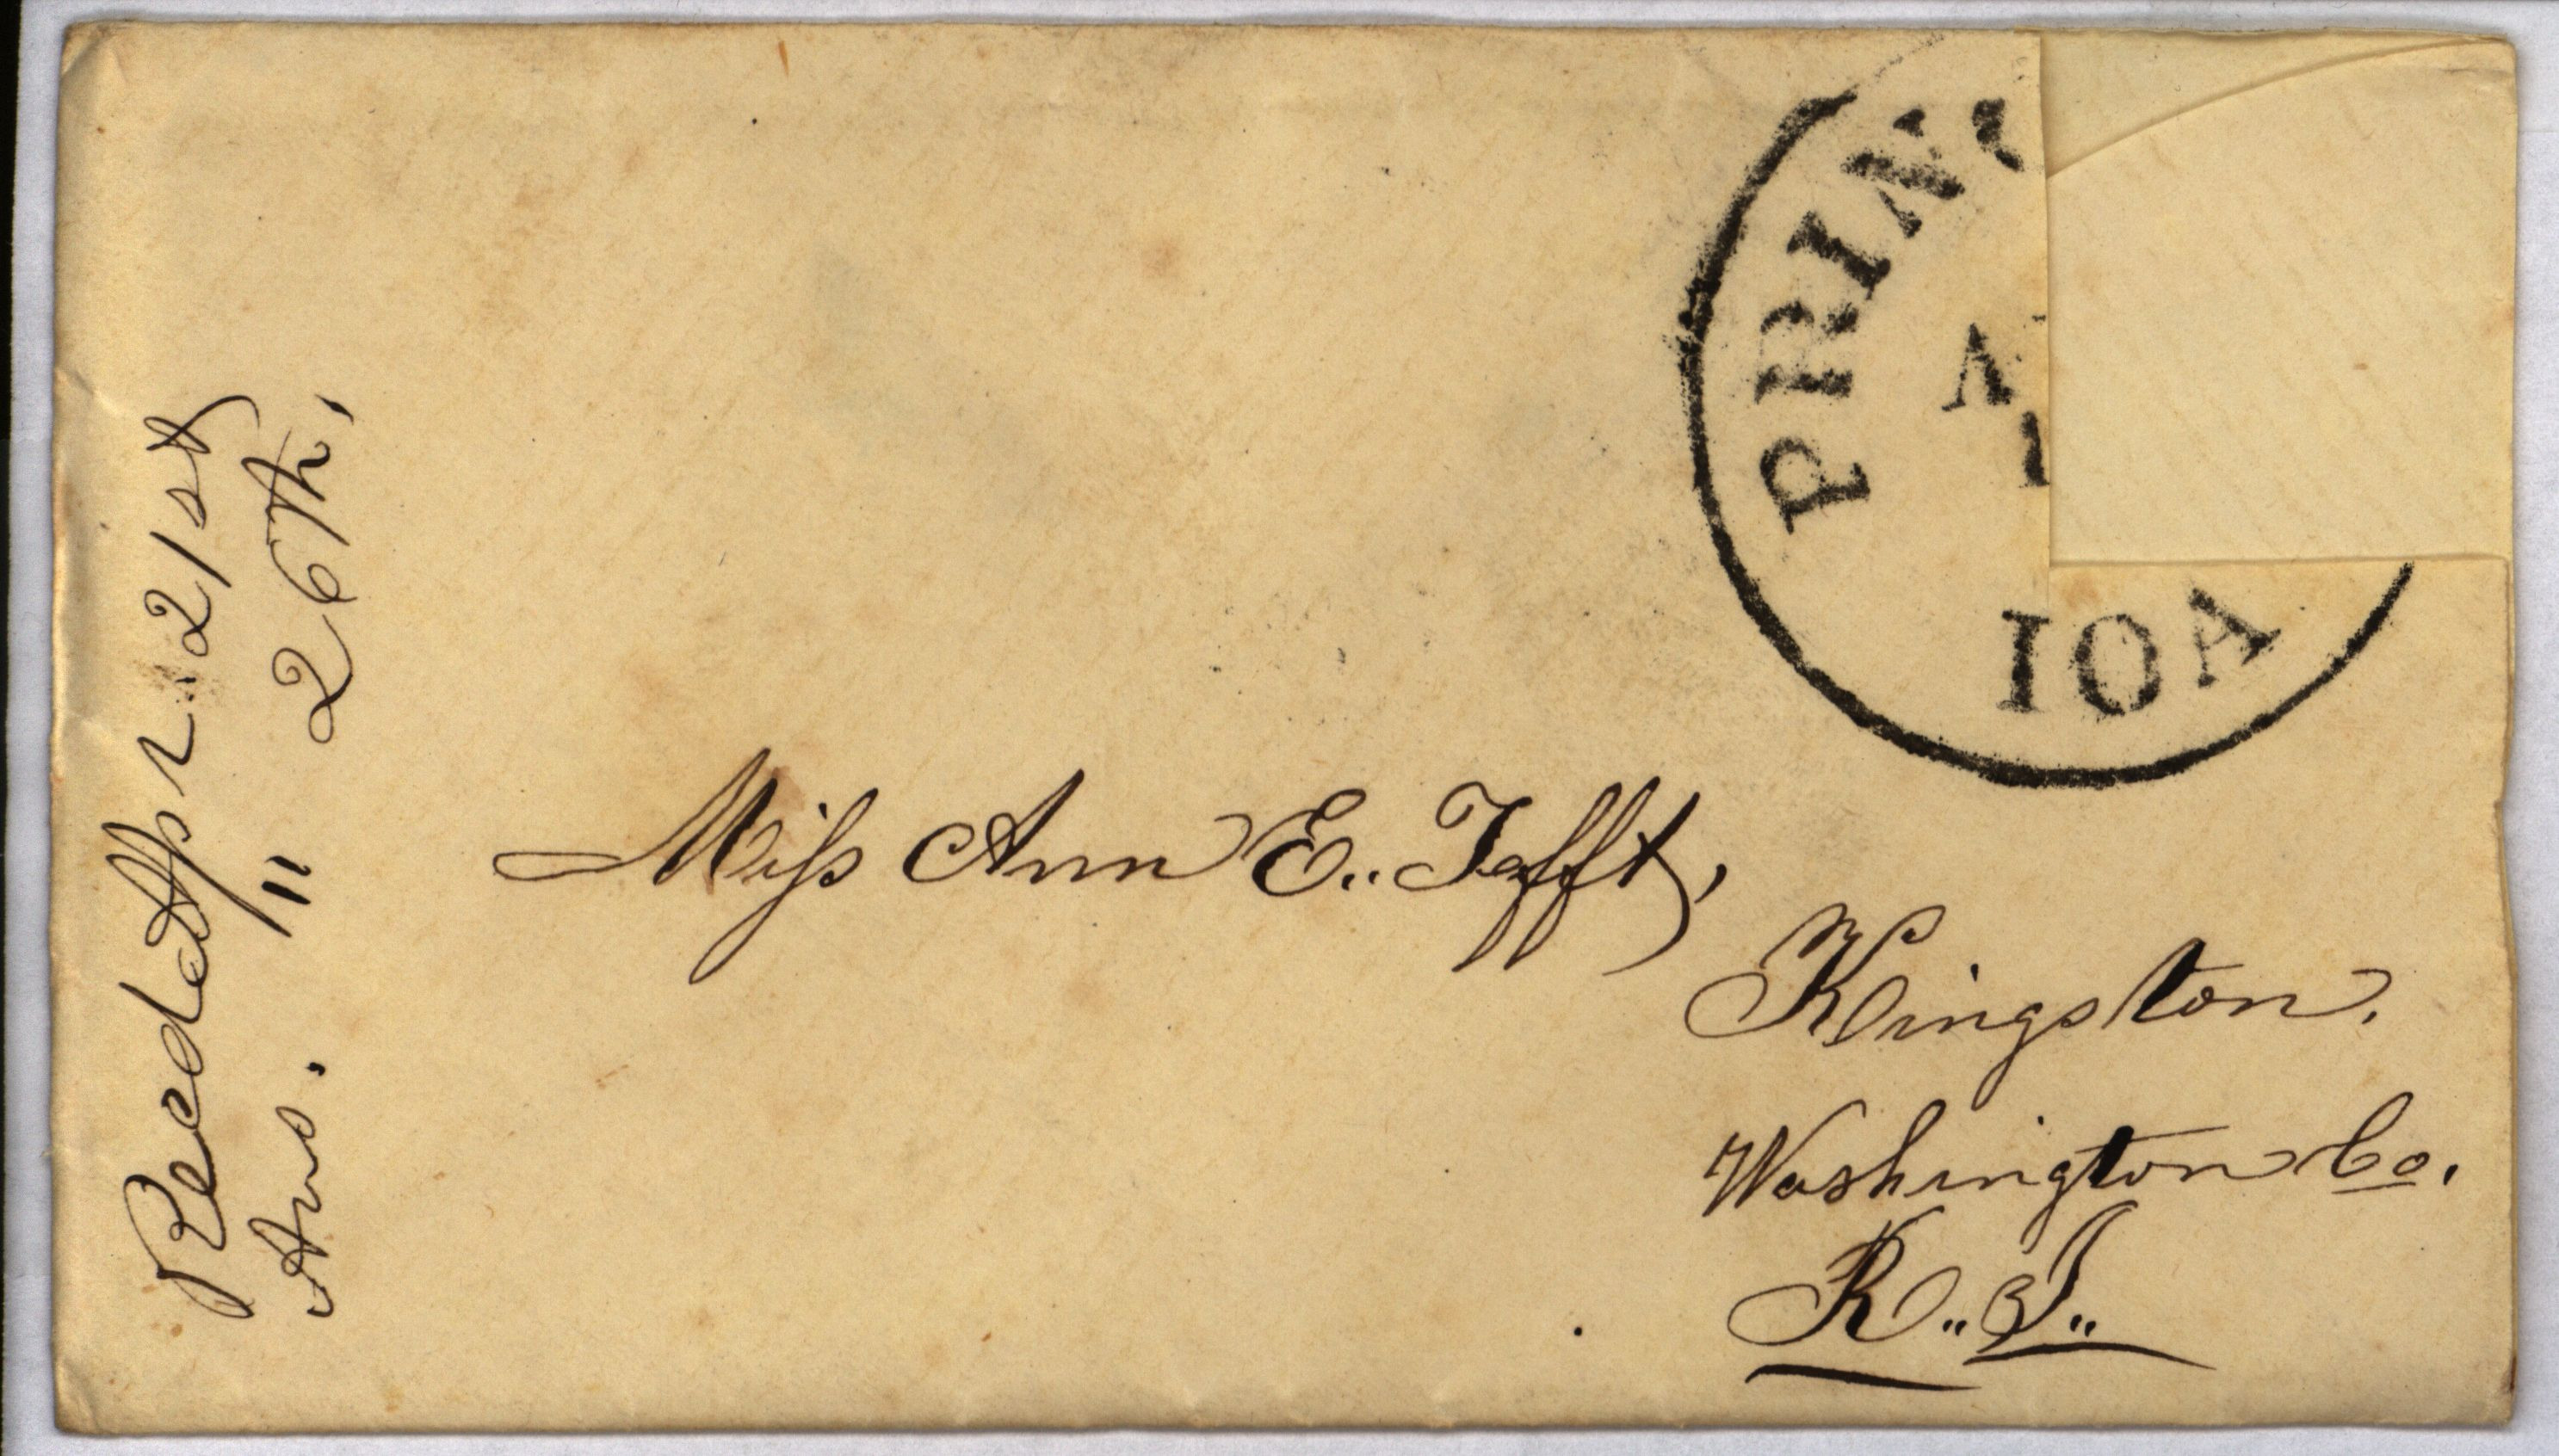 Recd Apr. 21st
Ans. " 26th,
PRIN
1
IOA
Miss Ann E.. Tefft,
Kingston,
Washington Co.
R.. I..